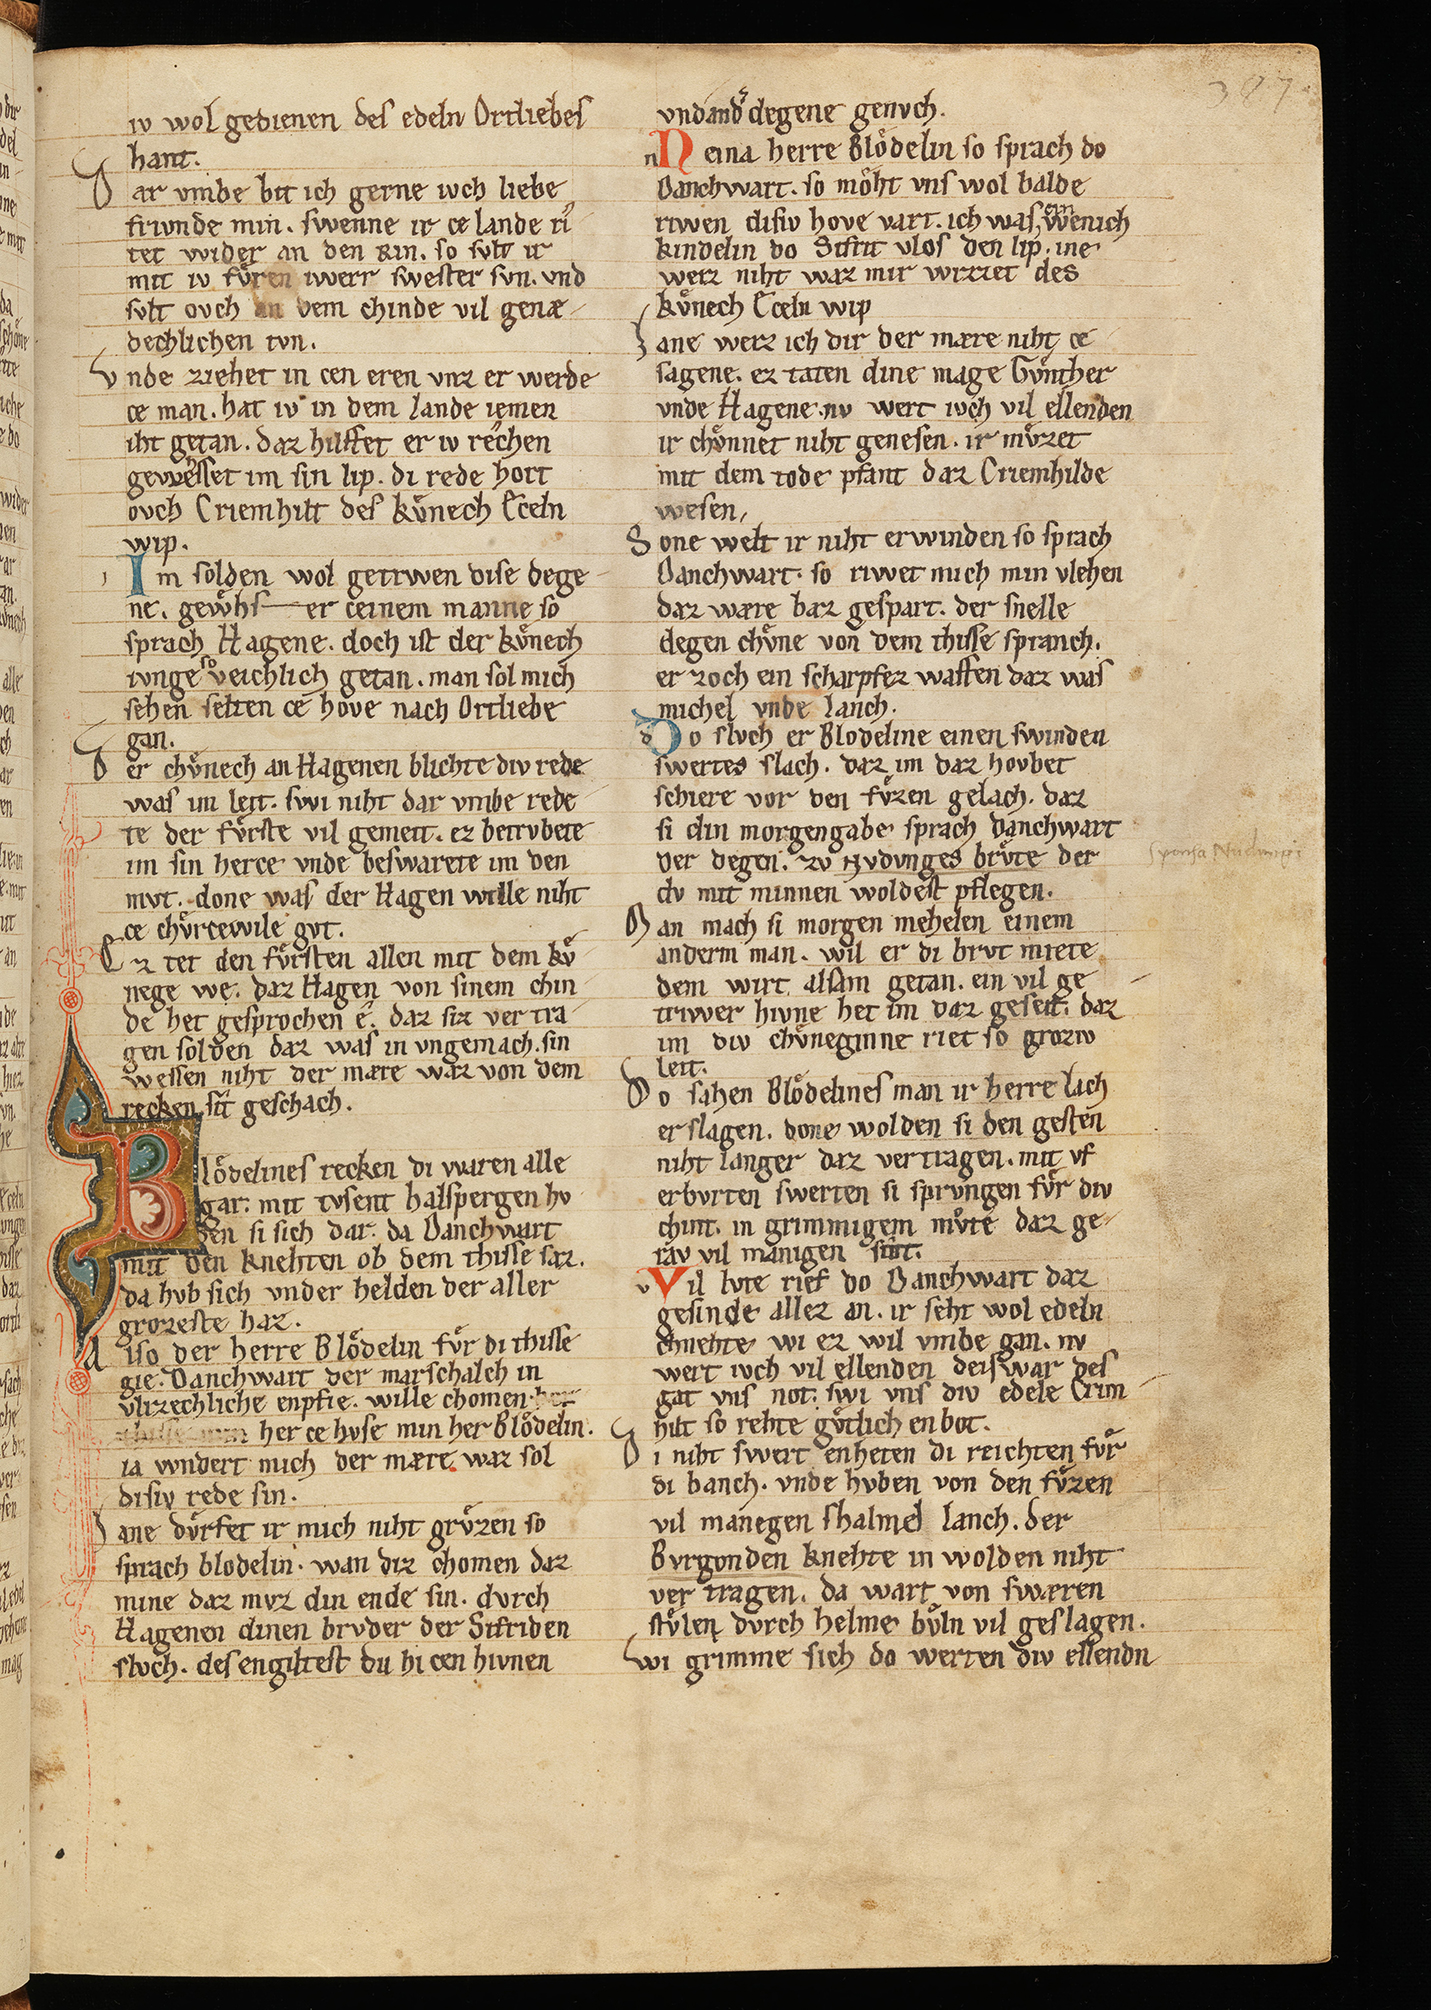 387
iv wol gedienen des edeln Ortliebes
hant.
Dar vmbe bit ich gerne ivch liebe
frivnde min. swenne ir ce lande ri
tet wider an den Rin. so svlt ir
mit iv fvͤren iwerr swester svn. vnd
svlt ovch an dem chinde vil genæ-
dechlichen tvn.
Vnde ziehet in cen eren vnz er werde
ce man. hat iv in dem lande iemen
iht getan. daz hilffet er iv rechen
gewesset im sin lip. di rede hort
ovch Criemhilt des kvͤnech Eceln
wip.
Im solden wol getrwen dise dege-
ne. gewͤhs er ceinem manne so
sprach Hagene. doch ist der kvͤnech
ivnge so veichlich getan. man sol mich
sehen selten ce hove nach Ortliebe
gan.
Der chvͤnech an Hagenen blichte div rede
was im leit. swi niht dar vmbe rede-
te der fvͤrste vil gemeit. ez betrvbete
im sin herce vnde beswarete im den
mvt. done was der Hagen wille niht
ce chvͤrcewile gvt.
Ez tet den fvͤrsten allen mit dem kvͤ-
nege we. daz Hagen von sinem chin-
de het gesprochen e. daz siz ver tra-
gen solden daz was in vngemach. sin
wessen niht der mære waz von dem
recken sit geschach.
Bloͤdelines recken di waren alle
gar. mit tvsent halspergen hv
ben si sich dar. da Danchwart
mit den knehten ob dem thisse saz.
da hvb sich vnder helden der aller
grozeste haz.
Also der herre Bloͤdelin fvͤr di thisse
gie. Danchwart der marschalch in
vlizechliche enpfie. wille chomen
her ce hvse min her Bloͤdelin.
ia wndert mich der mære waz sol
disiv rede sin.
Jane dvͤrfet ir mich niht grvͤzen so
sprach blodelin. wan diz chomen daz
mine daz mvz din ende sin. dvrch
Hagenen dinen brvder der Sifriden
slvch. des engiltest du hi cen hivnen
vnd and degene genvch.
Neina herre Bloͤdelin so sprach do
Danchwart. so moͤht vns wol balde
riwen disiv hove vart. ich was ein wenich
kindelin do Sifrit vlos den lip. ine
weiz niht waz mir wizzet des
kvͤnech Eceln wip
Jane weiz ich dir der mære niht ce
sagene. ez taten dine mage Gvͤnther
vnde Hagene. nv wert ivch vil ellenden
ir chvͤnnet niht genesen. ir mvͤzet
mit dem tode pfant daz Criemhilde
wesen,
Sone welt ir niht erwinden so sprach
Danchwart. so riwet mich min vlehen
daz wære baz gespart. der snelle
degen chvͤne von dem thisse spranch.
er zoch ein scharpfez waffen daz was
michel vnde lanch.
Do slvch er Blodeline einen swinden
swertes slach. daz im daz hovbet
schiere vor den fvͤzen gelach. daz
si din morgengabe sprach Danchwart
der degen. zv Nvdvnges brvͤte der
dv mit minnen woldest pflegen.
sponsa Nudungi
Man mach si morgen mehelen einem
anderm man. wil er di brvt miete
dem wirt alsam getan. ein vil ge-
triwer hivne het im daz geseit. daz
im div chvͤneginne riet so groziv
leit.
Do sahen Bloͤdelines man ir herre lach
erslagen. done wolden si den gesten
niht langer daz vertragen. mit vf
erbvrten swerten si sprvngen fvͤr div
chint. in grimmigem mvͤte daz ge-
rav vil manigen sint.
Vil lvte rief do Danchwart daz
gesinde allez an. ir seht wol edeln
chnehte wi ez wil vmbe gan. nv
wert ivch vil ellenden deiswar des
gat vns not. swi vns div edele Crim
hilt so rehte gvͤtlich enbot.
Di niht swert enheten di reichten fvͤr
di banch. vnde hvben von den fvͤzen
vil manegen shalmel lanch. der
Bvrgonden knehte in wolden niht
ver tragen. da wart von swæren
stvͤlen dvrch helme bvͤln vil geslagen.
Swi grimme sich do werten div ellendn